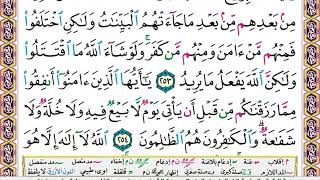 مِنۢ بَعْدِهِم مِّنۢ بَعْدِ مَا جَآءَتْهُمُ ٱلْبَيِّنَٰتُ وَلَٰكِنِ ٱخْتَلَفُوا۟
فَمِنْهُم مَّنْ ءَامَنَ وَمِنْهُم مَّن كَفَرَ ۚ وَلَوْ شَآءَ ٱللَّهُ مَا ٱقْتَتَلُوا۟
وَلَٰكِنَّ ٱللَّهَ يَفْعَلُ مَا يُرِيدُ ٢٥٣ يَٰٓأَيُّهَا ٱلَّذِينَ ءَامَنُوٓا۟ أَنفِقُوا۟
مِمَّا رَزَقْنَٰكُم مِّن قَبْلِ أَن يَأْتِىَ يَوْمٌ لَّا بَيْعٌ فِيهِ وَلَا خُلَّةٌ وَلَا
شَفَٰعَةٌ ۗ وَٱلْكَٰفِرُونَ هُمُ ٱلظَّٰلِمُونَ ٢٥٤ ٱللَّهُ لَآ إِلَٰهَ إِلَّا هُوَ